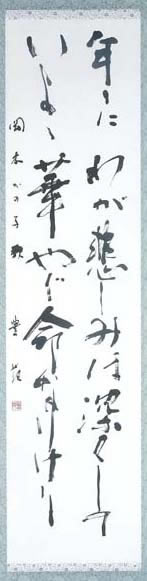 年々に わが悲しみは深くして
いよよ華やぐ命なりけり
岡本かの子 歌 豊